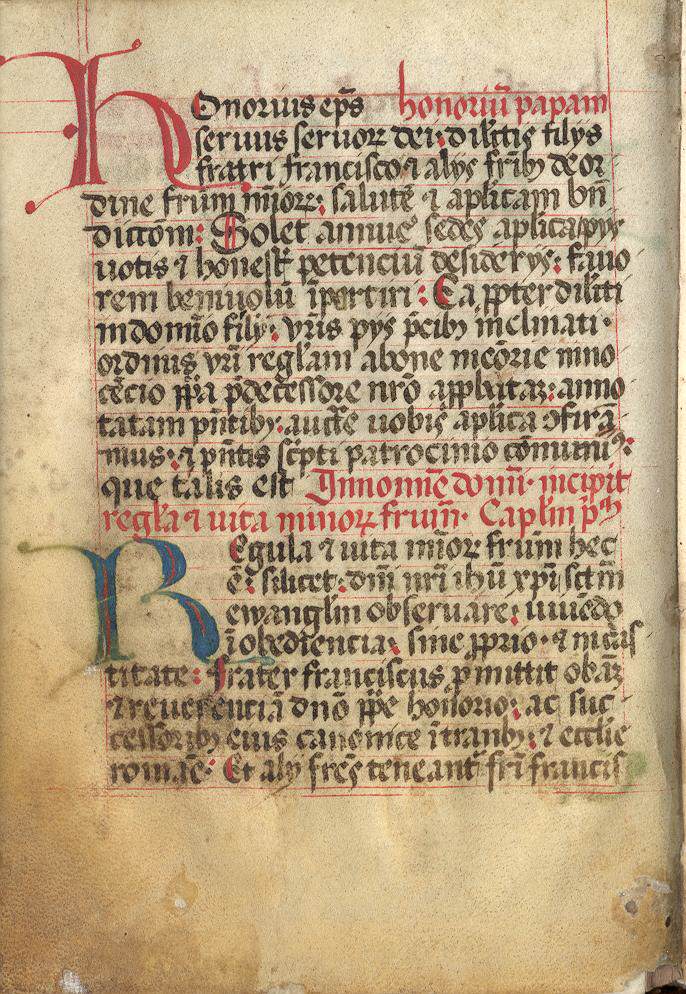 Honorius ep̄s honoriū papam
seruus seruoꝝ dei: dilc̄tis filys
fratri francisco: ⁊ alys fr̄ibꝫ de or
dine frūm mīoꝝ: salutē ⁊ ap̄licam bn̄
dictōm: Solet annue᷒ sedes ap̄lica: pys
uotis ⁊ honest᷒ petenciū desiderys: fauo
rem beniuolū īpertiri: Ea ꝓpter dilc̄ti
in domīo filij: vr̄is pys p̄cibꝫ inclinati·
ordinis vr̄i regl̄am abone meōrie inno
cēcio pp̄a p̄decessore nr̄o app̄batam: anno
tatam pn̄tibꝫ: auctē uobis ap̄lica ↄfirā
mus: ⁊ pn̄tis sc̄pti patrocinio cōmuniꝰ:
que talis est Innomīe domī· incipit
regl̄a ⁊ uita minoꝝ frum̄· Capl̄m pᵐ
Regula ⁊ uita mīoꝝ frūm hec
ē: silicet: dn̄i nr̄i ihū xp̄i sc̄tm̄
ewangl̄m obseruare: uiuēdo
ī obedīencia: sine ꝓprio· ⁊ incas
titate: Frater franciscus ꝓmittit obām
⁊ reuerenciā dn̄o pp̄e honorio: ac suc
cessoribꝫ eius canonice ītrantibꝫ: ⁊ ecclīe
romāe: Et aly fres̄ teneant᷒ fr̄i francis